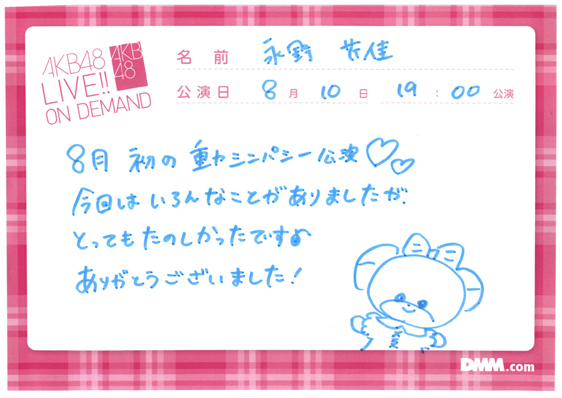 AKB48
LIVE!!
ON DEMAND
AKB
48
名前 永野 芹佳
公演日 8月 10日 19:00公演
8月 初の 重力シンパシー公演♡♡
今回は いろんなことがありましたが、
とってもたのしかったです♪
ありがとうございました!
DMM.com